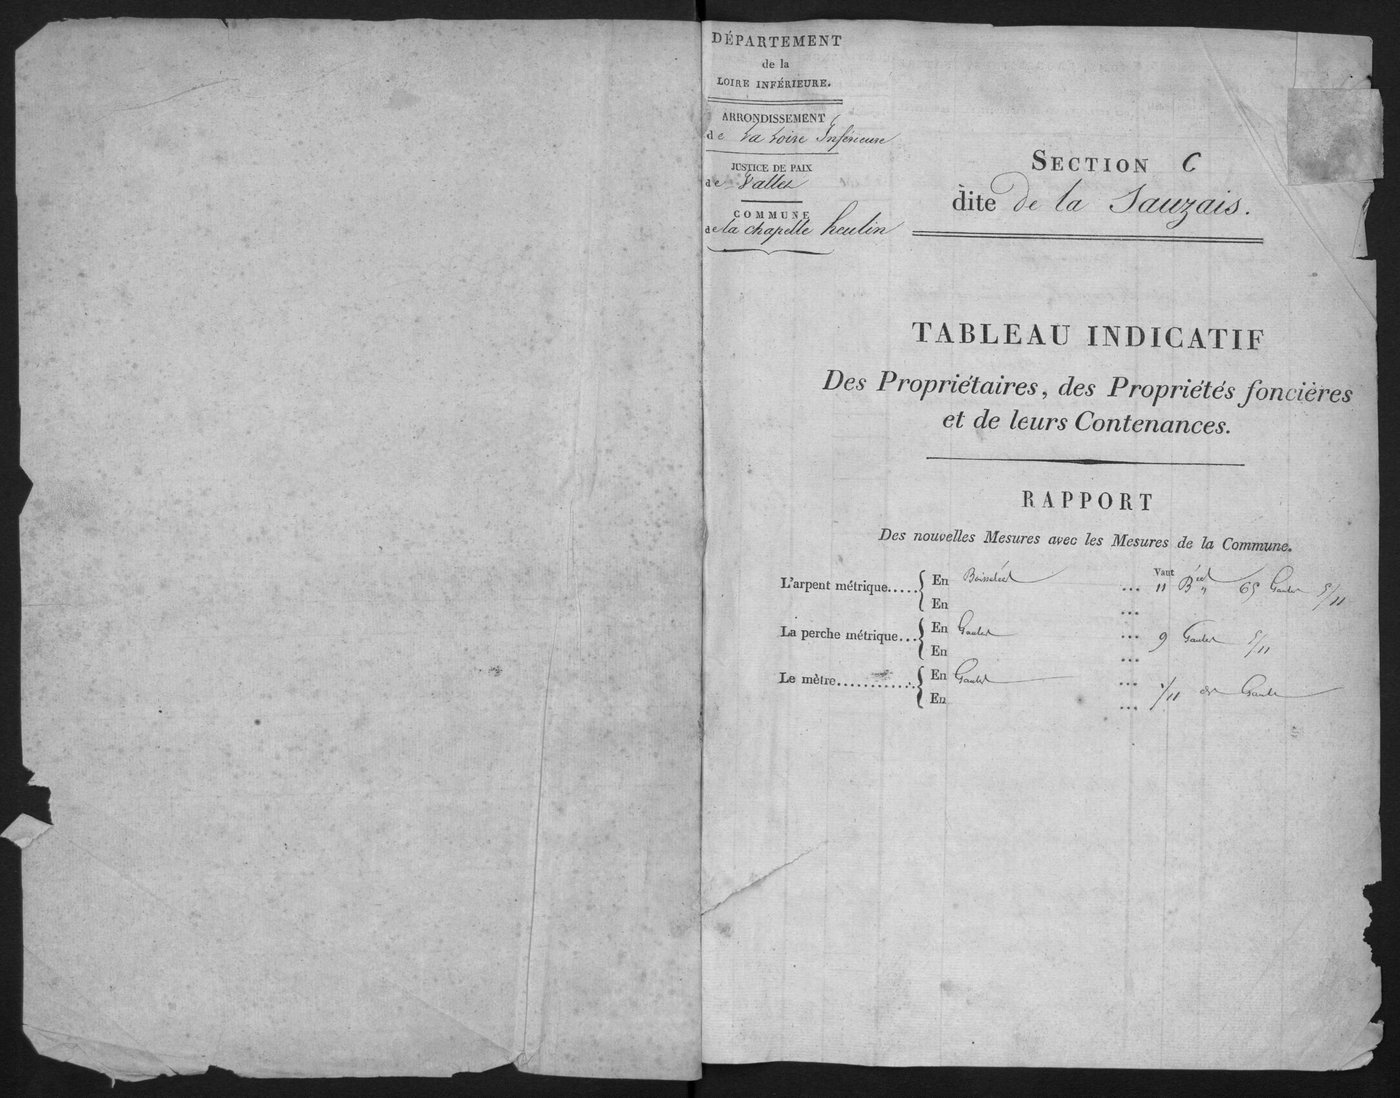 DÉPARTEMENT
de la
LOIRE INFÉRIEURE.
ARRONDISSEMENT
de La Loire Inférieure
JUSTICE DE PAIX
de Vallet
COMMUNE
de la chapelle heulin
SECTION C
dite de la Sauzais.
TABLEAU INDICATIF
Des Propriétaires, des Propriétés foncières
et de leurs Contenances.
RAPPORT
Des nouvelles Mesures avec les Mesures de la Commune.
Vaut
L'arpent métrique..... { En Boisselées ... 11 B.ées 65 Gaules 5/11
En ...
La perche métrique... { En Gaules ... 9 Gaules 5/11
En ...
Le mètre............ { En Gaules ... 1/11 de Gaule
En ...